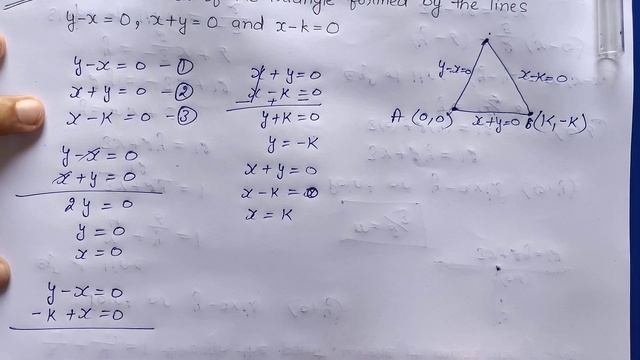 of the triangle formed by the lines
y-x=0, x+y=0 and x-k=0
y-x = 0 - ①
x+y = 0 - ②
x-K = 0 - ③
y-x=0
x+y=0
2y = 0
y = 0
x = 0
y-x=0
-K+x=0
x+y=0
x-K=0
- + =
y+K=0
y=-K
x+y=0
x-K=0
x=K
y-x=0
x-K=0
A (0,0)
x+y=0
B(K,-K)